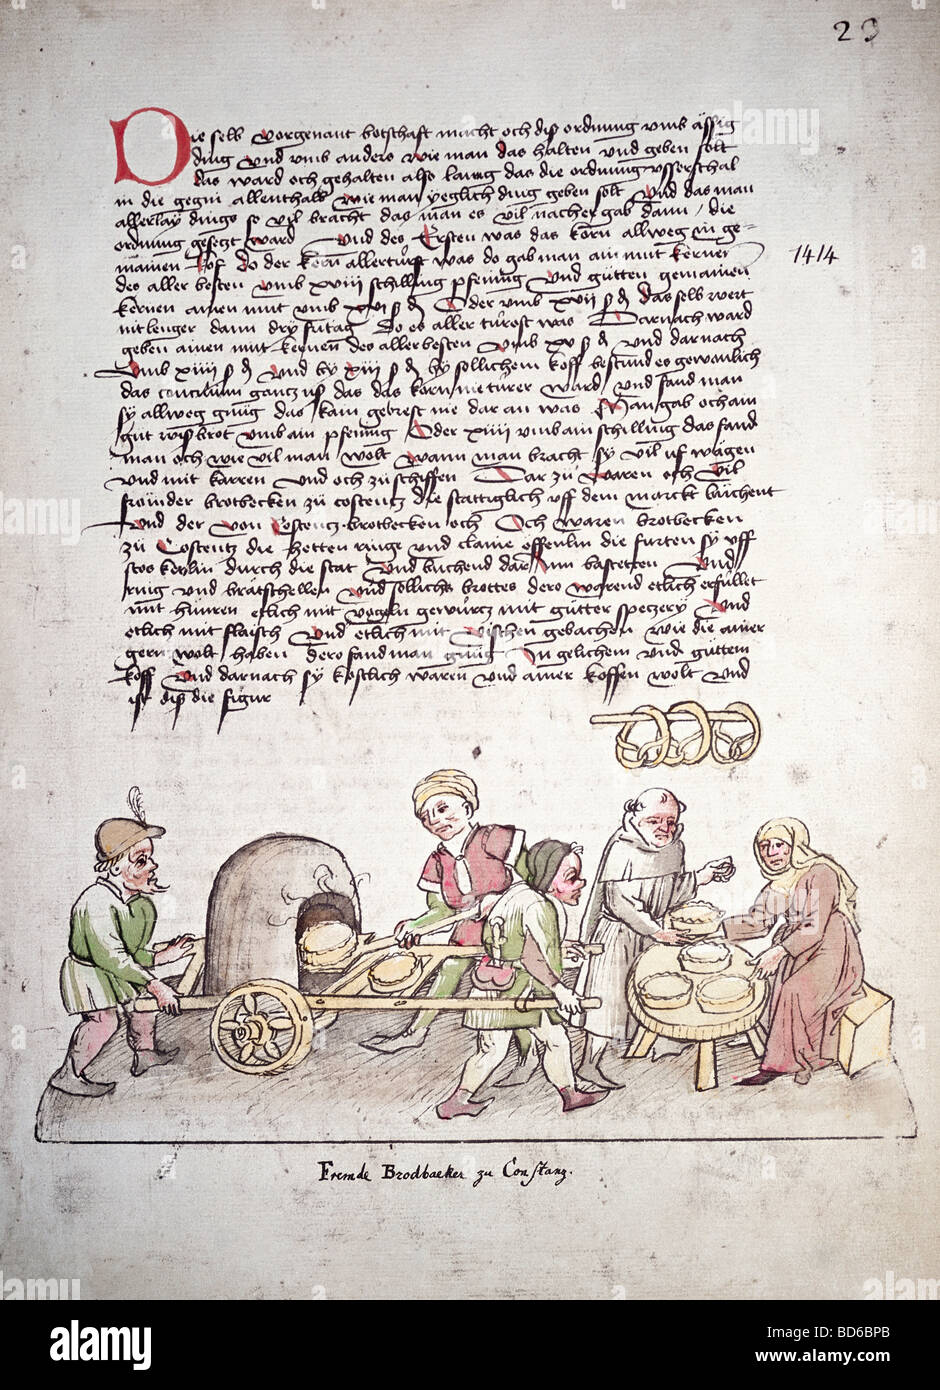 23
Die selb vorgenant botschaft macht och diß ordnung umb ässig
ding und umb anders wie man das halten und geben solt
das ward och gehalten also lanng das die ordnung usserschal
in die gegni allenthalb wie man yeglich ding geben solt Und das man
allerlay dings so vil bracht das man es vil nacher gab dann / die
ordnung gesetzt ward Und des Ersten was das korn allweg in ge-
mainen koff do der kern allerturst was do gab man ain mut kernen
1414
des aller besten umb xviii schilling pfening Und gutten gemainen
kernen ainen mutt umb xvi s d Oder umb xvii s d das selb wert
nit lenger dann dry fritag do es aller türost was Darnach ward
geben ainen mut kernen des allerbesten umb xv s d und darnach
umb xiiii s d und by xiii s d by sollichem koff bestund es gewonlich
das concilium gantz us das das korn nie türer ward und fand man
sy allweg gnüg das kain gebrest nie dar an was Man gab och ain
gut wißbrot umb ain pfening Oder xiiii umb ain schilling das fand
man och wie vil man wolt wann man bracht sy vil uf wägen
und mit karren und och zu schiffen Dar zu waren och vil
frömder brotbecken zu costentz die stättiglich uff dem marckt bächent
und der von Costentz brotbecken och Och waren brotbecken
zu Costentz die hetten ringe und claine öffenlin die furten sy uff
stoskerlin durch die stat und buchend dar inn bastetten und
ring und brätschellen und sollichs brottes dero warend etlich erfüllet
mit hünren etlich mit vogeln gewürtz mit gütter specery und
etlich mit flaisch und etlich mit vischen gebachen wie die ainer
gern wolt haben dero fand man gnüg In gelichem und güttem
koff und darnach sy kostlich waren und ainer koffen wolt und
ist diß die figur
Fremde Brodbaeker zu Constanz.
alamy
alamy
BD6BPB
www.alamy.com